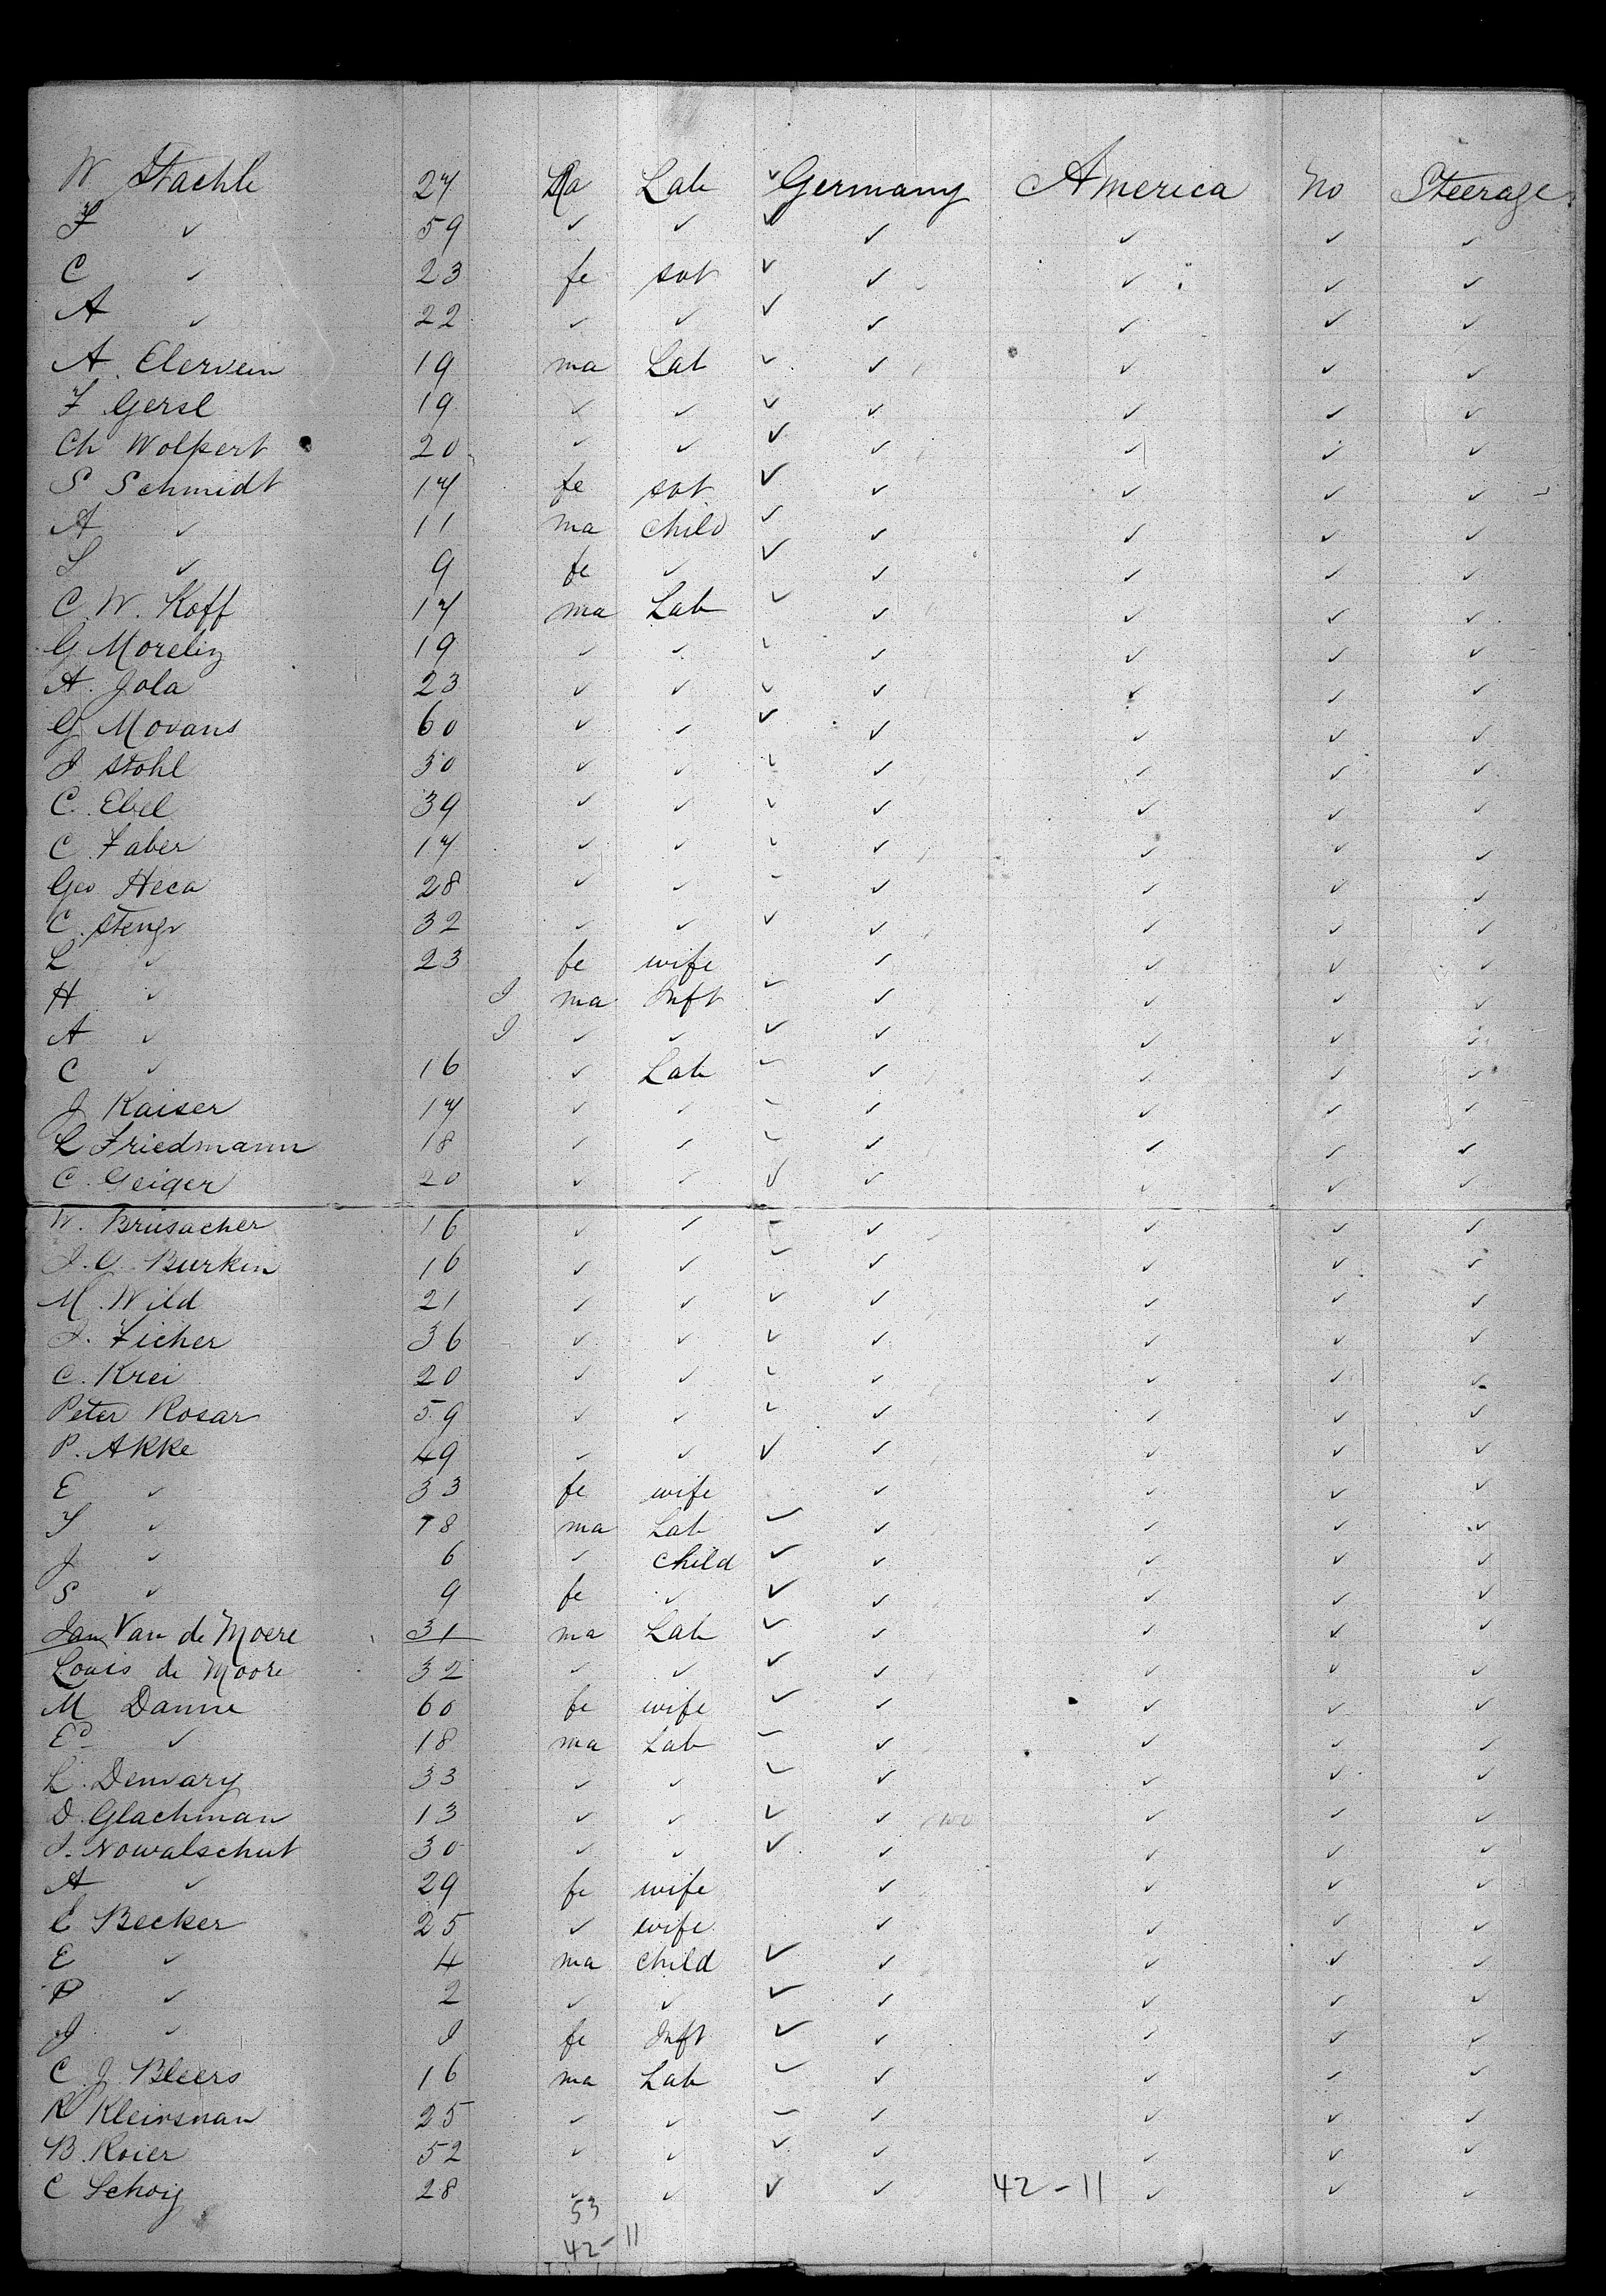 W Stachle 27 Ma Lab ✓ Germany America No Steerage
F ✓ 59 ✓ ✓ ✓ ✓ ✓ ✓ ✓
C ✓ 23 fe svt ✓ ✓ ✓ ✓ ✓
A ✓ 22 ✓ ✓ ✓ ✓ ✓ ✓ ✓
A. Clervein 19 ma Lab ✓ ✓ ✓ ✓ ✓
F Gersl 19 ✓ ✓ ✓ ✓ ✓ ✓ ✓
Ch Wolpert 20 ✓ ✓ ✓ ✓ ✓ ✓ ✓
S Schmidt 17 fe svt ✓ ✓ ✓ ✓ ✓
A ✓ 11 ma child ✓ ✓ ✓ ✓ ✓
S ✓ 9 fe ✓ ✓ ✓ ✓ ✓ ✓
C. W. Koff 17 ma Lab ✓ ✓ ✓ ✓ ✓
G Moreliz 19 ✓ ✓ ✓ ✓ ✓ ✓ ✓
A. Jola 23 ✓ ✓ ✓ ✓ ✓ ✓ ✓
G Movans 60 ✓ ✓ ✓ ✓ ✓ ✓ ✓
J Stohl 30 ✓ ✓ ✓ ✓ ✓ ✓ ✓
C. Ebel 39 ✓ ✓ ✓ ✓ ✓ ✓ ✓
C. Faber 17 ✓ ✓ ✓ ✓ ✓ ✓ ✓
Geo Heca 28 ✓ ✓ ✓ ✓ ✓ ✓ ✓
C. Stengr 32 ✓ ✓ ✓ ✓ ✓ ✓ ✓
L ✓ 23 fe wife ✓ ✓ ✓ ✓
H ✓ I ma Inft ✓ ✓ ✓ ✓ ✓
A ✓ I ✓ ✓ ✓ ✓ ✓ ✓ ✓
C ✓ 16 ✓ Lab ✓ ✓ ✓ ✓ ✓
J Kaiser 17 ✓ ✓ ✓ ✓ ✓ ✓ ✓
L Friedmann 18 ✓ ✓ ✓ ✓ ✓ ✓ ✓
C. Geiger 20 ✓ ✓ ✓ ✓ ✓ ✓ ✓
W. Brusacher 16 ✓ ✓ ✓ ✓ ✓ ✓ ✓
J. C. Burkin 16 ✓ ✓ ✓ ✓ ✓ ✓ ✓
M. Wild 21 ✓ ✓ ✓ ✓ ✓ ✓ ✓
J. Ficher 36 ✓ ✓ ✓ ✓ ✓ ✓ ✓
C. Krei 20 ✓ ✓ ✓ ✓ ✓ ✓ ✓
Peter Rosar 59 ✓ ✓ ✓ ✓ ✓ ✓ ✓
P. Akke 49 ✓ ✓ ✓ ✓ ✓ ✓ ✓
E ✓ 33 fe wife ✓ ✓ ✓ ✓
S ✓ 18 ma Lab ✓ ✓ ✓ ✓ ✓
J ✓ 6 ✓ child ✓ ✓ ✓ ✓ ✓
S ✓ 9 fe ✓ ✓ ✓ ✓ ✓ ✓
Jan Van de Moere 31 ma Lab ✓ ✓ ✓ ✓ ✓
Louis de Moore 32 ✓ ✓ ✓ ✓ ✓ ✓ ✓
M Danne 60 fe wife ✓ ✓ ✓ ✓ ✓
Ed ✓ 18 ma Lab ✓ ✓ ✓ ✓ ✓
L. Denvary 33 ✓ ✓ ✓ ✓ ✓ ✓ ✓
D. Glachman 13 ✓ ✓ ✓ ✓ ✓ ✓ ✓
J. Nowalschut 30 ✓ ✓ ✓ ✓ ✓ ✓ ✓
A ✓ 29 fe wife ✓ ✓ ✓ ✓
C Becker 25 ✓ wife ✓ ✓ ✓ ✓
E ✓ 4 ma child ✓ ✓ ✓ ✓ ✓
P ✓ 2 ✓ ✓ ✓ ✓ ✓ ✓ ✓
J ✓ I fe Inft ✓ ✓ ✓ ✓ ✓
C. J. Bleers 16 ma Lab ✓ ✓ ✓ ✓ ✓
R Kleirsman 25 ✓ ✓ ✓ ✓ ✓ ✓ ✓
B. Roier 52 ✓ ✓ ✓ ✓ ✓ ✓ ✓
C Schoig 28 ✓ ✓ ✓ ✓ 42-11 ✓ ✓ ✓
53
42-11